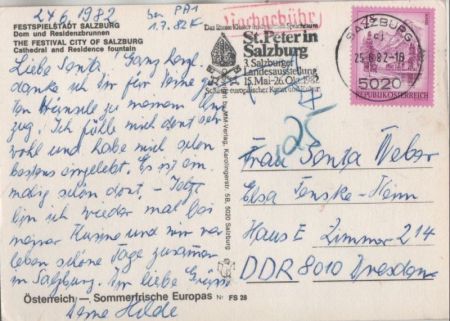 24.6.1982
ben. PA1
1.7.82 K
Nachgebühr
FESTSPIELSTADT SALZBURG
Dom und Residenzbrunnen
THE FESTIVAL CITY OF SALZBURG
Cathedral and Residence fountain
Liebe Senta! Ganz herzl.
danke ich Dir für Deine
Wünsche zu meinem
zug. Ich fühle mich dort sehr
wohl und habe mich schon
bestens eingelebt. Es ist
schön dort – 
bin ich wieder mal bei
meiner und wir
schöne Tage zusammen
in Salzburg. Liebe Grüße
Deine Hilde
Österreich — Sommerfrische Europas Nr. FS 28
5020 Salzburg
St. Peter in
Salzburg
3. Salzburger
Landesausstellung
15. Mai-26. Okt. 1982
Schätze europäischer Kunst und Kultur
SALZBURG
25.6.82
5020
REPUBLIK ÖSTERREICH
25
Frau Senta Weber
Elsa Fenske-Heim
Haus E Zimmer 214
DDR 8010 Dresden